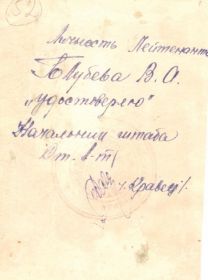 52
Личность Лейтенанта
Голубева В. А.
„удостоверею"
Начальник штаба
/Кравец/.